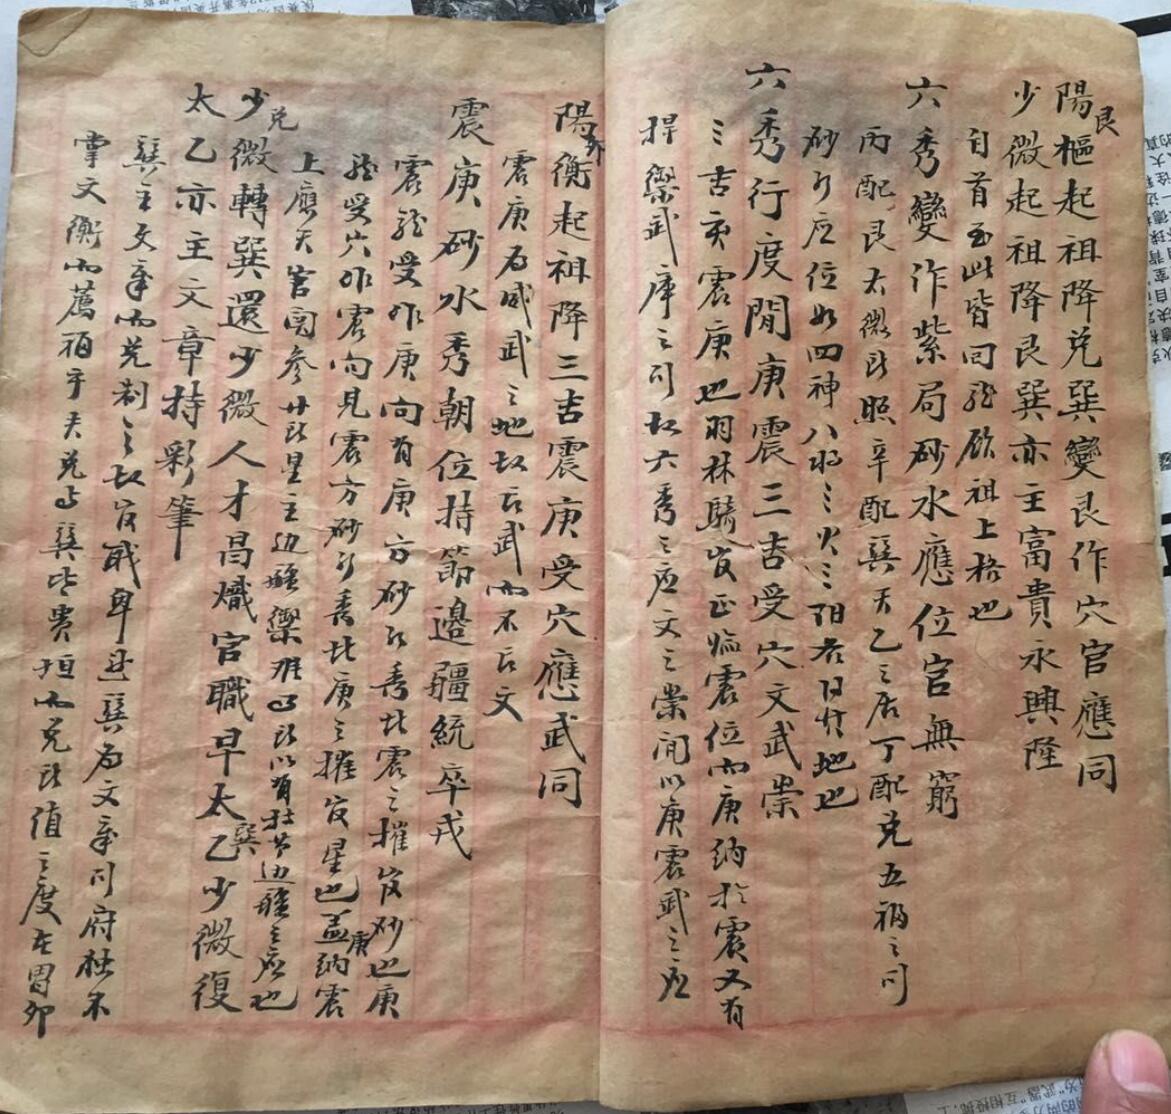 陽樞起祖降兌巽變艮作穴官應同
艮
少微起祖降艮巽亦主富貴永興隆
自首至此皆同龍欣祖上格也
六秀變作紫局砂水應位官無窮
丙配艮太微所照辛配巽天乙之居丁配兌五福之司
砂水应位如四神八將三火三阳君日月地也
六秀行度間庚震三吉受穴文武崇
三吉亥震庚也羽林騎官正临震位而庚納於震又有
捍禦武庫之司故六秀之应文之崇间以庚震武之应
陽衡起祖降三吉震庚受穴應武同
卯
震庚为威武之地故言武而不言文
震庚砂水秀朝位持節邊疆統卒戎
震龍受作庚向有庚方砂水秀此震之摧官砂也庚
龍受穴作震向見震方砂水秀此庚之摧官星也盖納震
庚
上應天
星主边疆禦难
故以有
边疆之应也
少微轉巽還少微人才昌熾官職早太乙少微復
兌
巽
太乙亦主文章持彩筆
巽主文章而兌制之故官職卑且巽为文章司府秪不
掌文衡而薦福于夫兌与巽皆贵垣而兌所值之度在胃卯